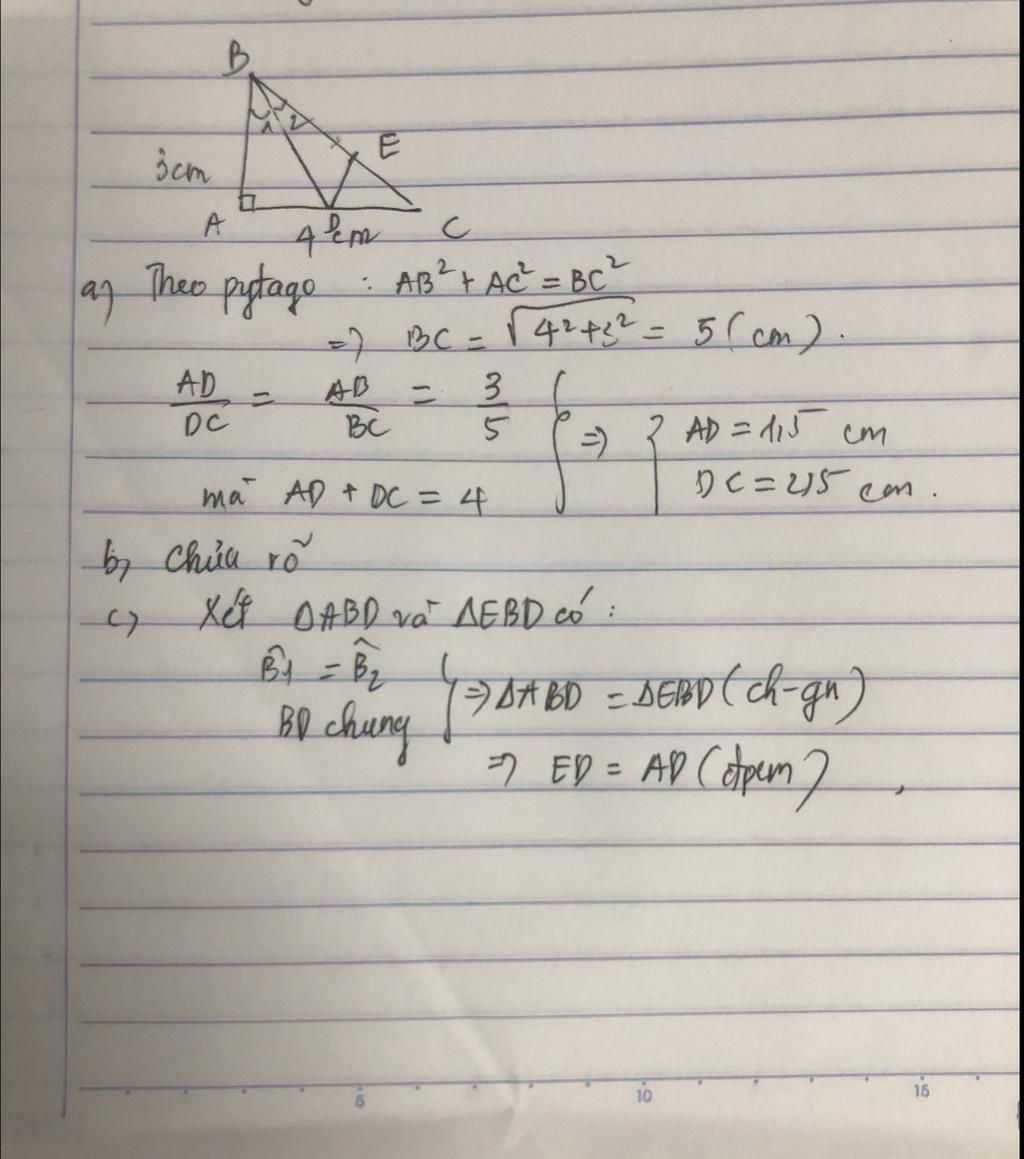 B
1 2
E
3cm
A
4cm
D
C
a) Theo pytago : AB² + AC² = BC²
=> BC = √4²+3² = 5 (cm).
AD/DC = AB/BC = 3/5
mà AD + DC = 4
=> { AD = 1,5 cm
DC = 2,5 cm.
b, Chửa rõ
c, Xét ΔABD và ΔEBD có :
B̂1 = B̂2
BD chung
=> ΔABD = ΔEBD (ch-gn)
=> ED = AD (đpcm)
5 10 15